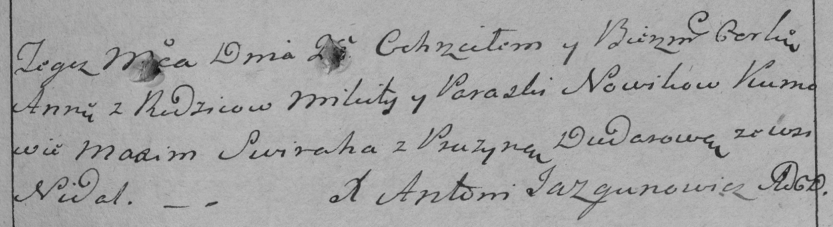 Tegez Mca Dnia 2e Ochrzciłem y Bierzm. Corkę
Annę z Rodzicow Mikity y Paraski Nowikow Kumo
wie Maxim Swiraha z Pruzyną Dudarową ze wsi
Nidal. _ _ X Antoni Jazgunowicz